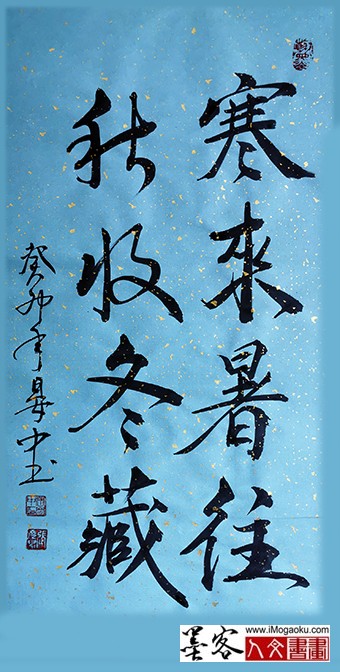 寒來暑往
秋收冬藏
癸卯年
墨客
www.iMogaoku.com
人文書畫